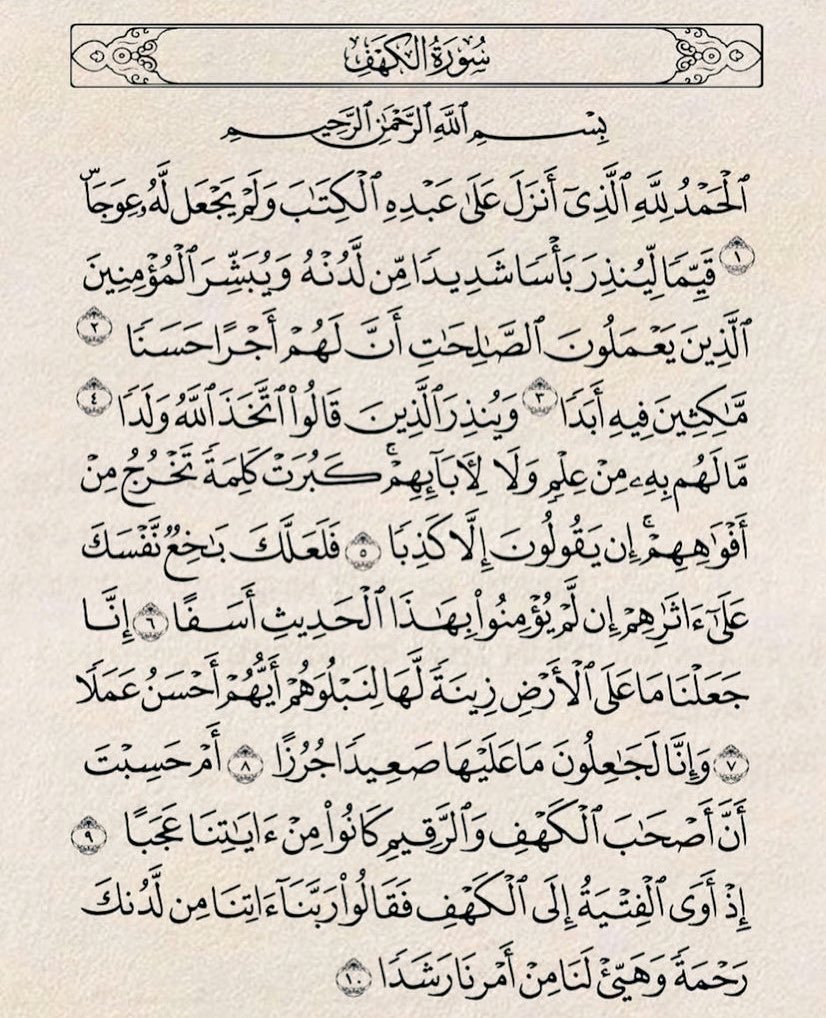 سُورَةُ الكَهۡفِ
بِسۡمِ ٱللَّهِ ٱلرَّحۡمَٰنِ ٱلرَّحِيمِ
ٱلۡحَمۡدُ لِلَّهِ ٱلَّذِيٓ أَنزَلَ عَلَىٰ عَبۡدِهِ ٱلۡكِتَٰبَ وَلَمۡ يَجۡعَل لَّهُۥ عِوَجَاۜ
١ قَيِّمٗا لِّيُنذِرَ بَأۡسٗا شَدِيدٗا مِّن لَّدُنۡهُ وَيُبَشِّرَ ٱلۡمُؤۡمِنِينَ
ٱلَّذِينَ يَعۡمَلُونَ ٱلصَّٰلِحَٰتِ أَنَّ لَهُمۡ أَجۡرًا حَسَنٗا ٢
مَّٰكِثِينَ فِيهِ أَبَدٗا ٣ وَيُنذِرَ ٱلَّذِينَ قَالُواْ ٱتَّخَذَ ٱللَّهُ وَلَدٗا ٤
مَّا لَهُم بِهِۦ مِنۡ عِلۡمٖ وَلَا لِأٓبَآئِهِمۡۚ كَبُرَتۡ كَلِمَةٗ تَخۡرُجُ مِنۡ
أَفۡوَٰهِهِمۡۚ إِن يَقُولُونَ إِلَّا كَذِبٗا ٥ فَلَعَلَّكَ بَٰخِعٞ نَّفۡسَكَ
عَلَىٰٓ ءَاثَٰرِهِمۡ إِن لَّمۡ يُؤۡمِنُواْ بِهَٰذَا ٱلۡحَدِيثِ أَسَفًا ٦ إِنَّا
جَعَلۡنَا مَا عَلَى ٱلۡأَرۡضِ زِينَةٗ لَّهَا لِنَبۡلُوَهُمۡ أَيُّهُمۡ أَحۡسَنُ عَمَلٗا
٧ وَإِنَّا لَجَٰعِلُونَ مَا عَلَيۡهَا صَعِيدٗا جُرُزًا ٨ أَمۡ حَسِبۡتَ
أَنَّ أَصۡحَٰبَ ٱلۡكَهۡفِ وَٱلرَّقِيمِ كَانُواْ مِنۡ ءَايَٰتِنَا عَجَبًا ٩
إِذۡ أَوَى ٱلۡفِتۡيَةُ إِلَى ٱلۡكَهۡفِ فَقَالُواْ رَبَّنَآ ءَاتِنَا مِن لَّدُنكَ
رَحۡمَةٗ وَهَيِّئۡ لَنَا مِنۡ أَمۡرِنَا رَشَدٗا ١٠